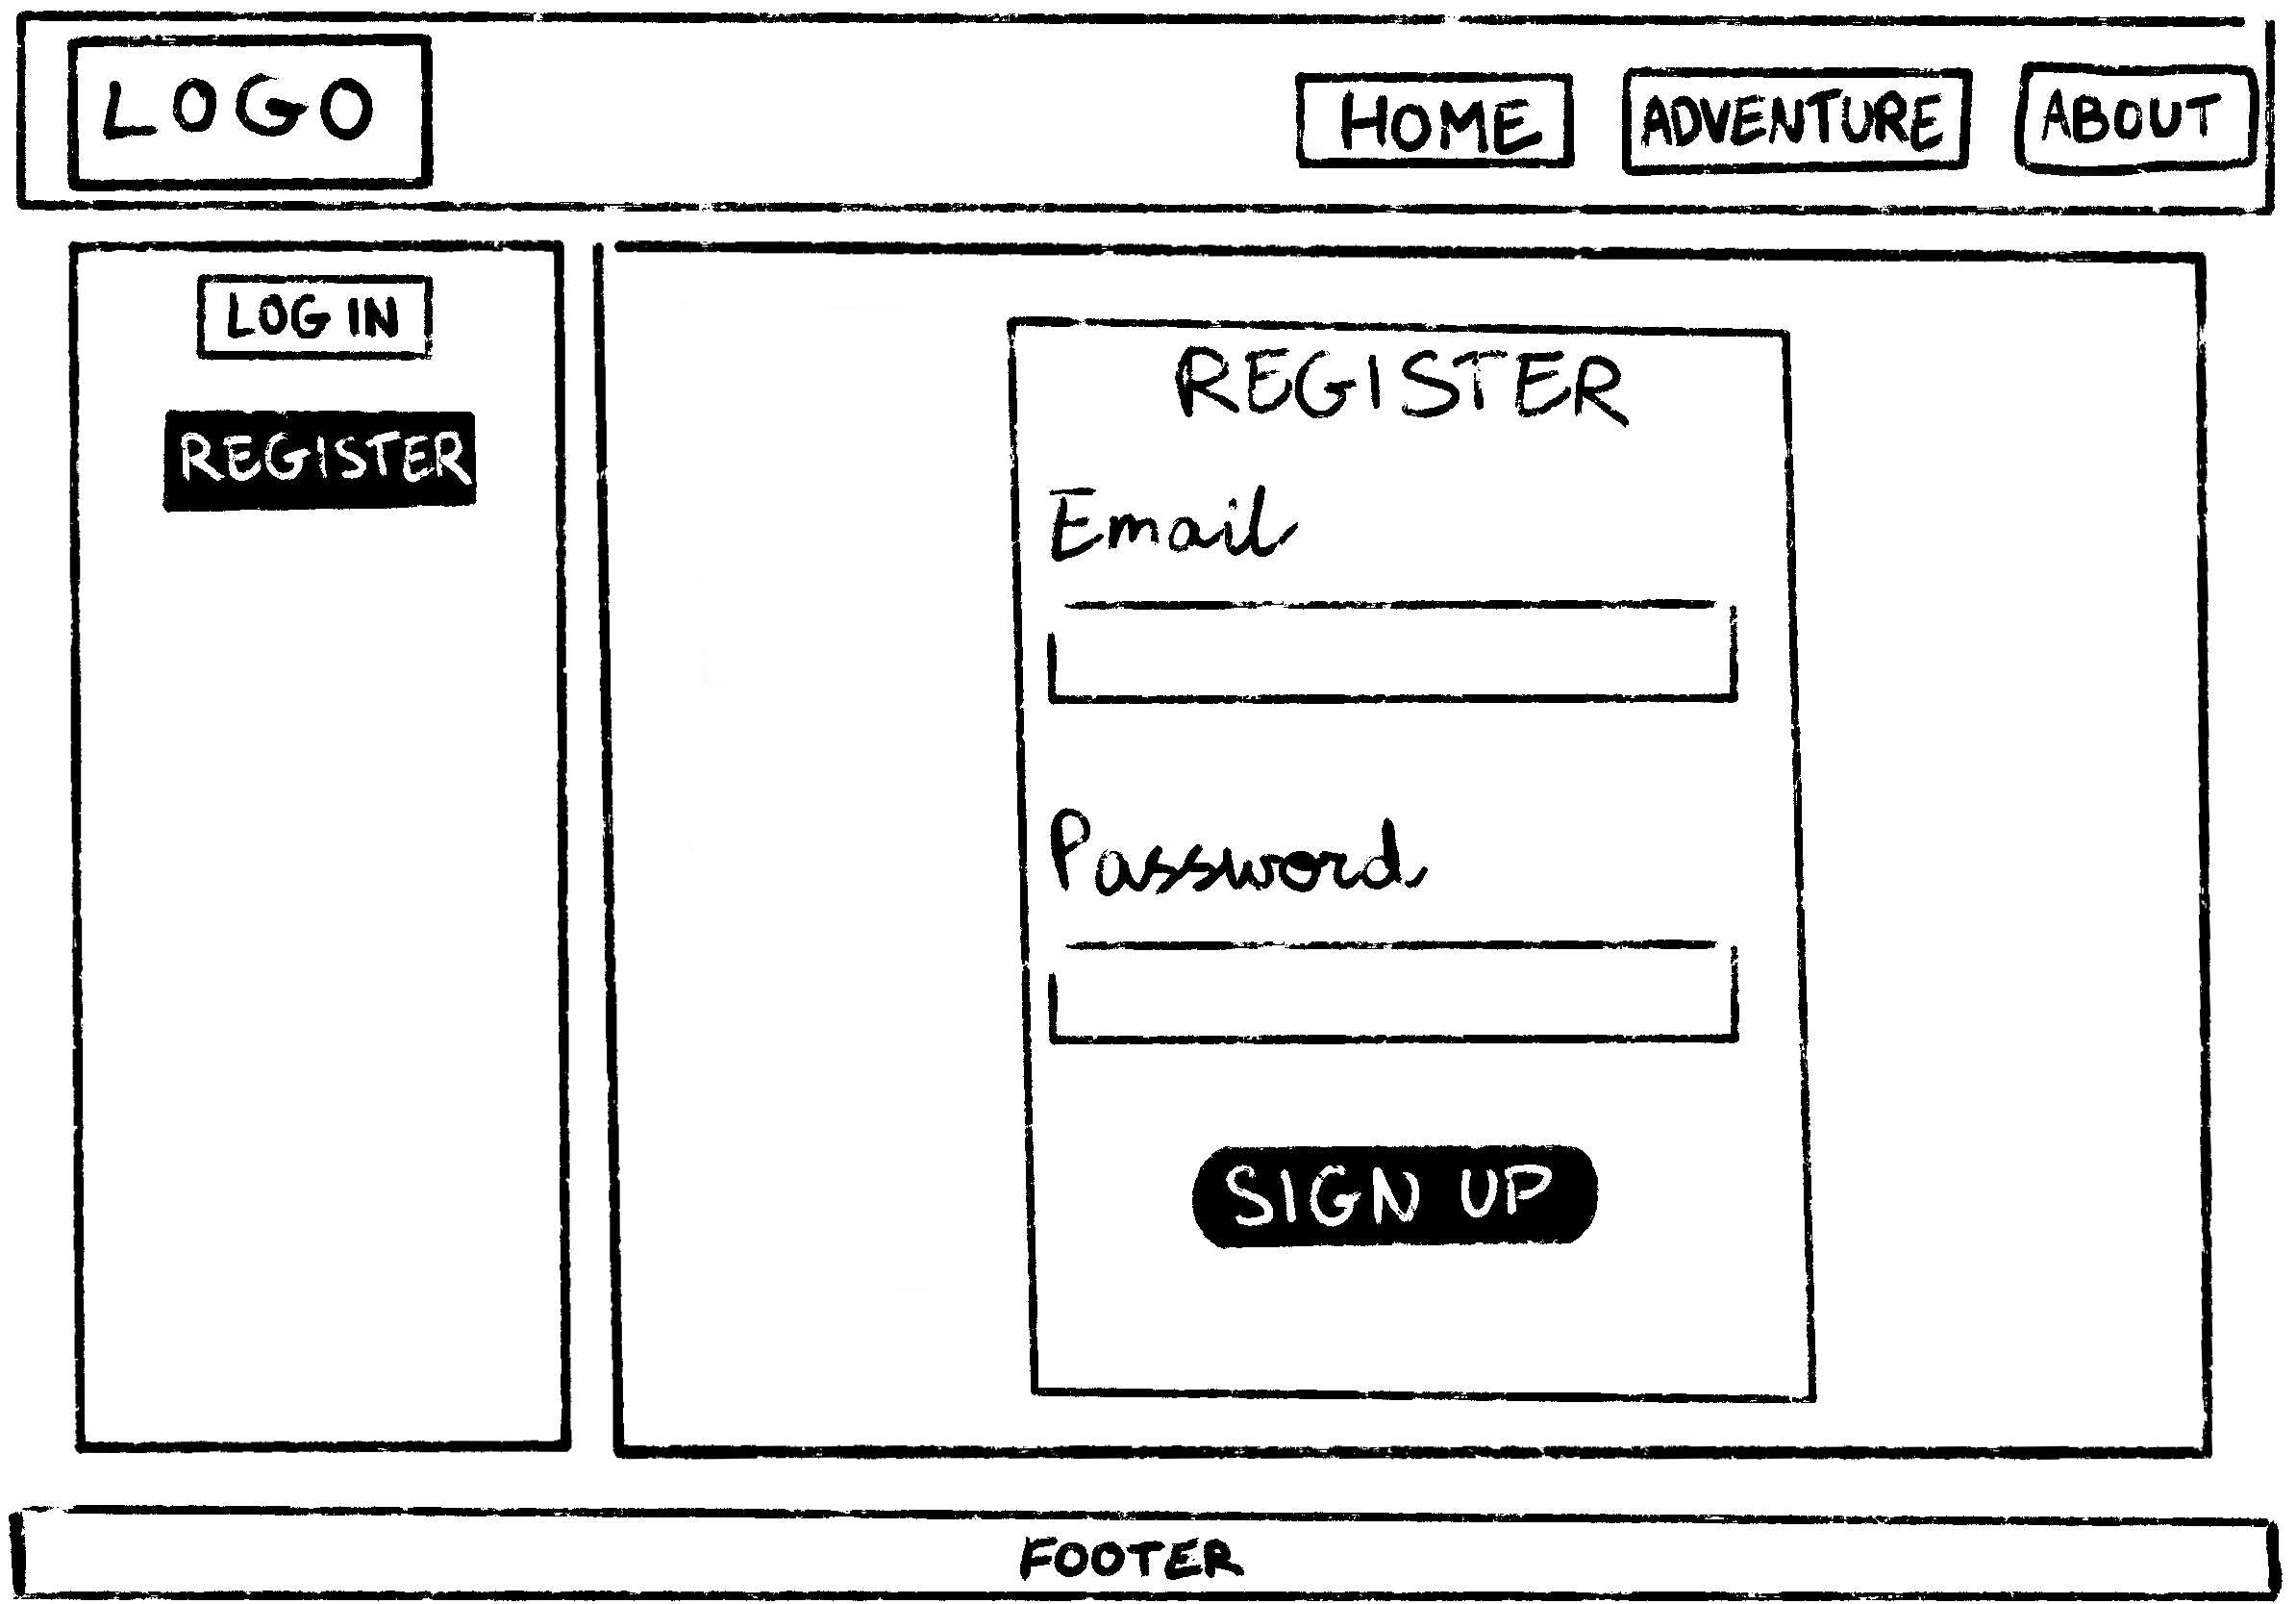 LOGO
HOME ADVENTURE ABOUT
LOG IN
REGISTER
REGISTER
Email
Password
SIGN UP
FOOTER